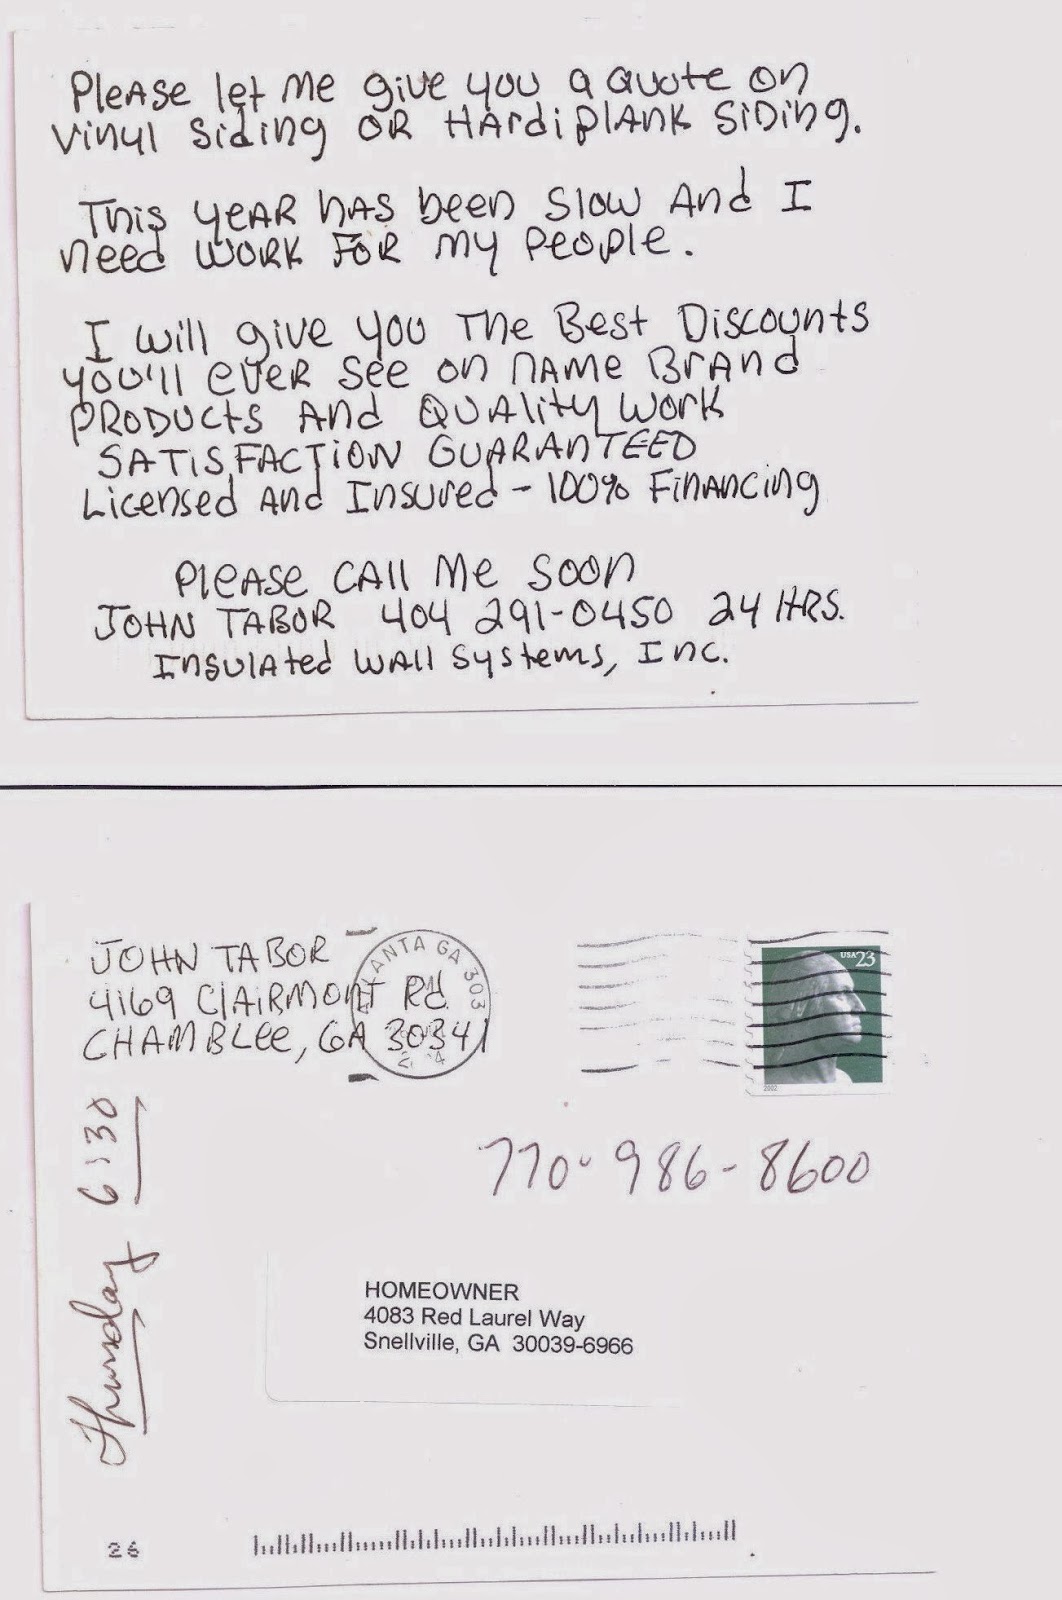 Please let me give you a quote on
vinyl siding OR HArdiplank SiDing.
This year has been slow And I
need work for my people.
I will give you The Best Discounts
you'll ever see on name Brand
products And Quality work
SATISFACTION GUARANTEED
Licensed And Insured - 100% Financing
Please call me soon
JOHN TABOR 404 291-0450 24 HRS.
Insulated Wall Systems, Inc.
JOHN TABOR
4169 Clairmont Rd
CHAMBLEE, GA 30341
ATLANTA GA 303
USA 23
2002
Thursday 6:30
770-986-8600
HOMEOWNER
4083 Red Laurel Way
Snellville, GA 30039-6966
26